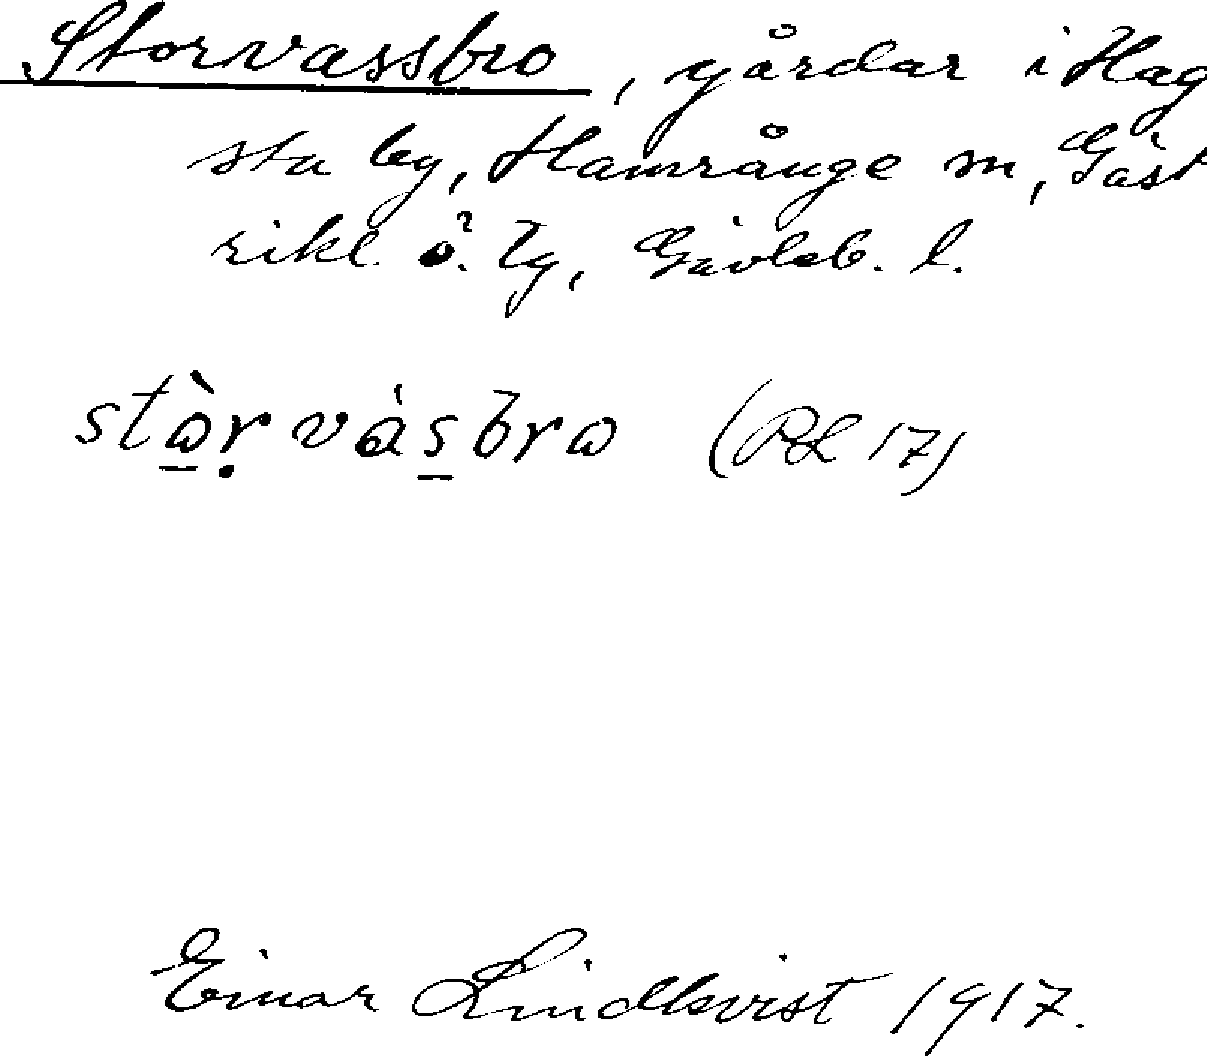 Storvassbro, gårdar i Hag
sta by, Hamrånge sn, Gäst
rikl. ö. Tg, Gävleb. l.
stὼ̱ṛvàs̱brω (RL 17)
Einar Lindkvist 1917.